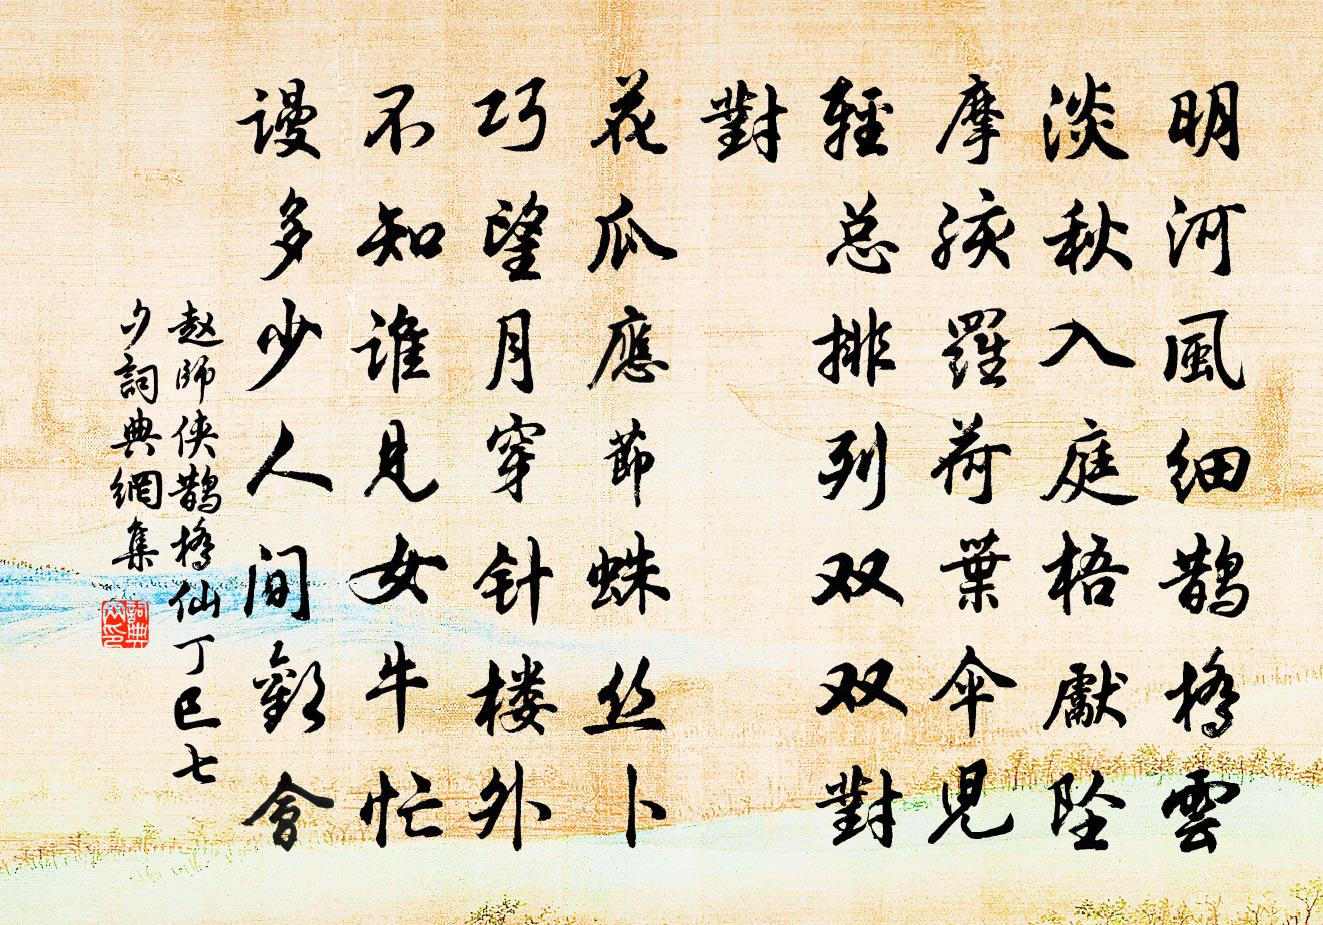 明河風細鹊橋雲
淡秋入庭梧獻坠
摩孩羅荷葉伞児
輕总排列双双對
對
花瓜應節蛛丝卜
巧望月穿针楼外
不知谁見女牛忙
谩多少人间歡會
赵師侠鹊橋仙丁巳七
夕詞典網集